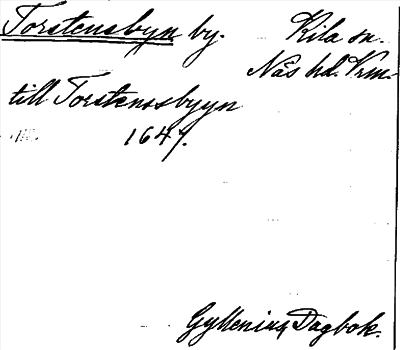 Torstensbyn by. Kila sn.
Näs hd. Vrm.
till Torstenssbyyn
1647.
Gyllenius Dagbok.